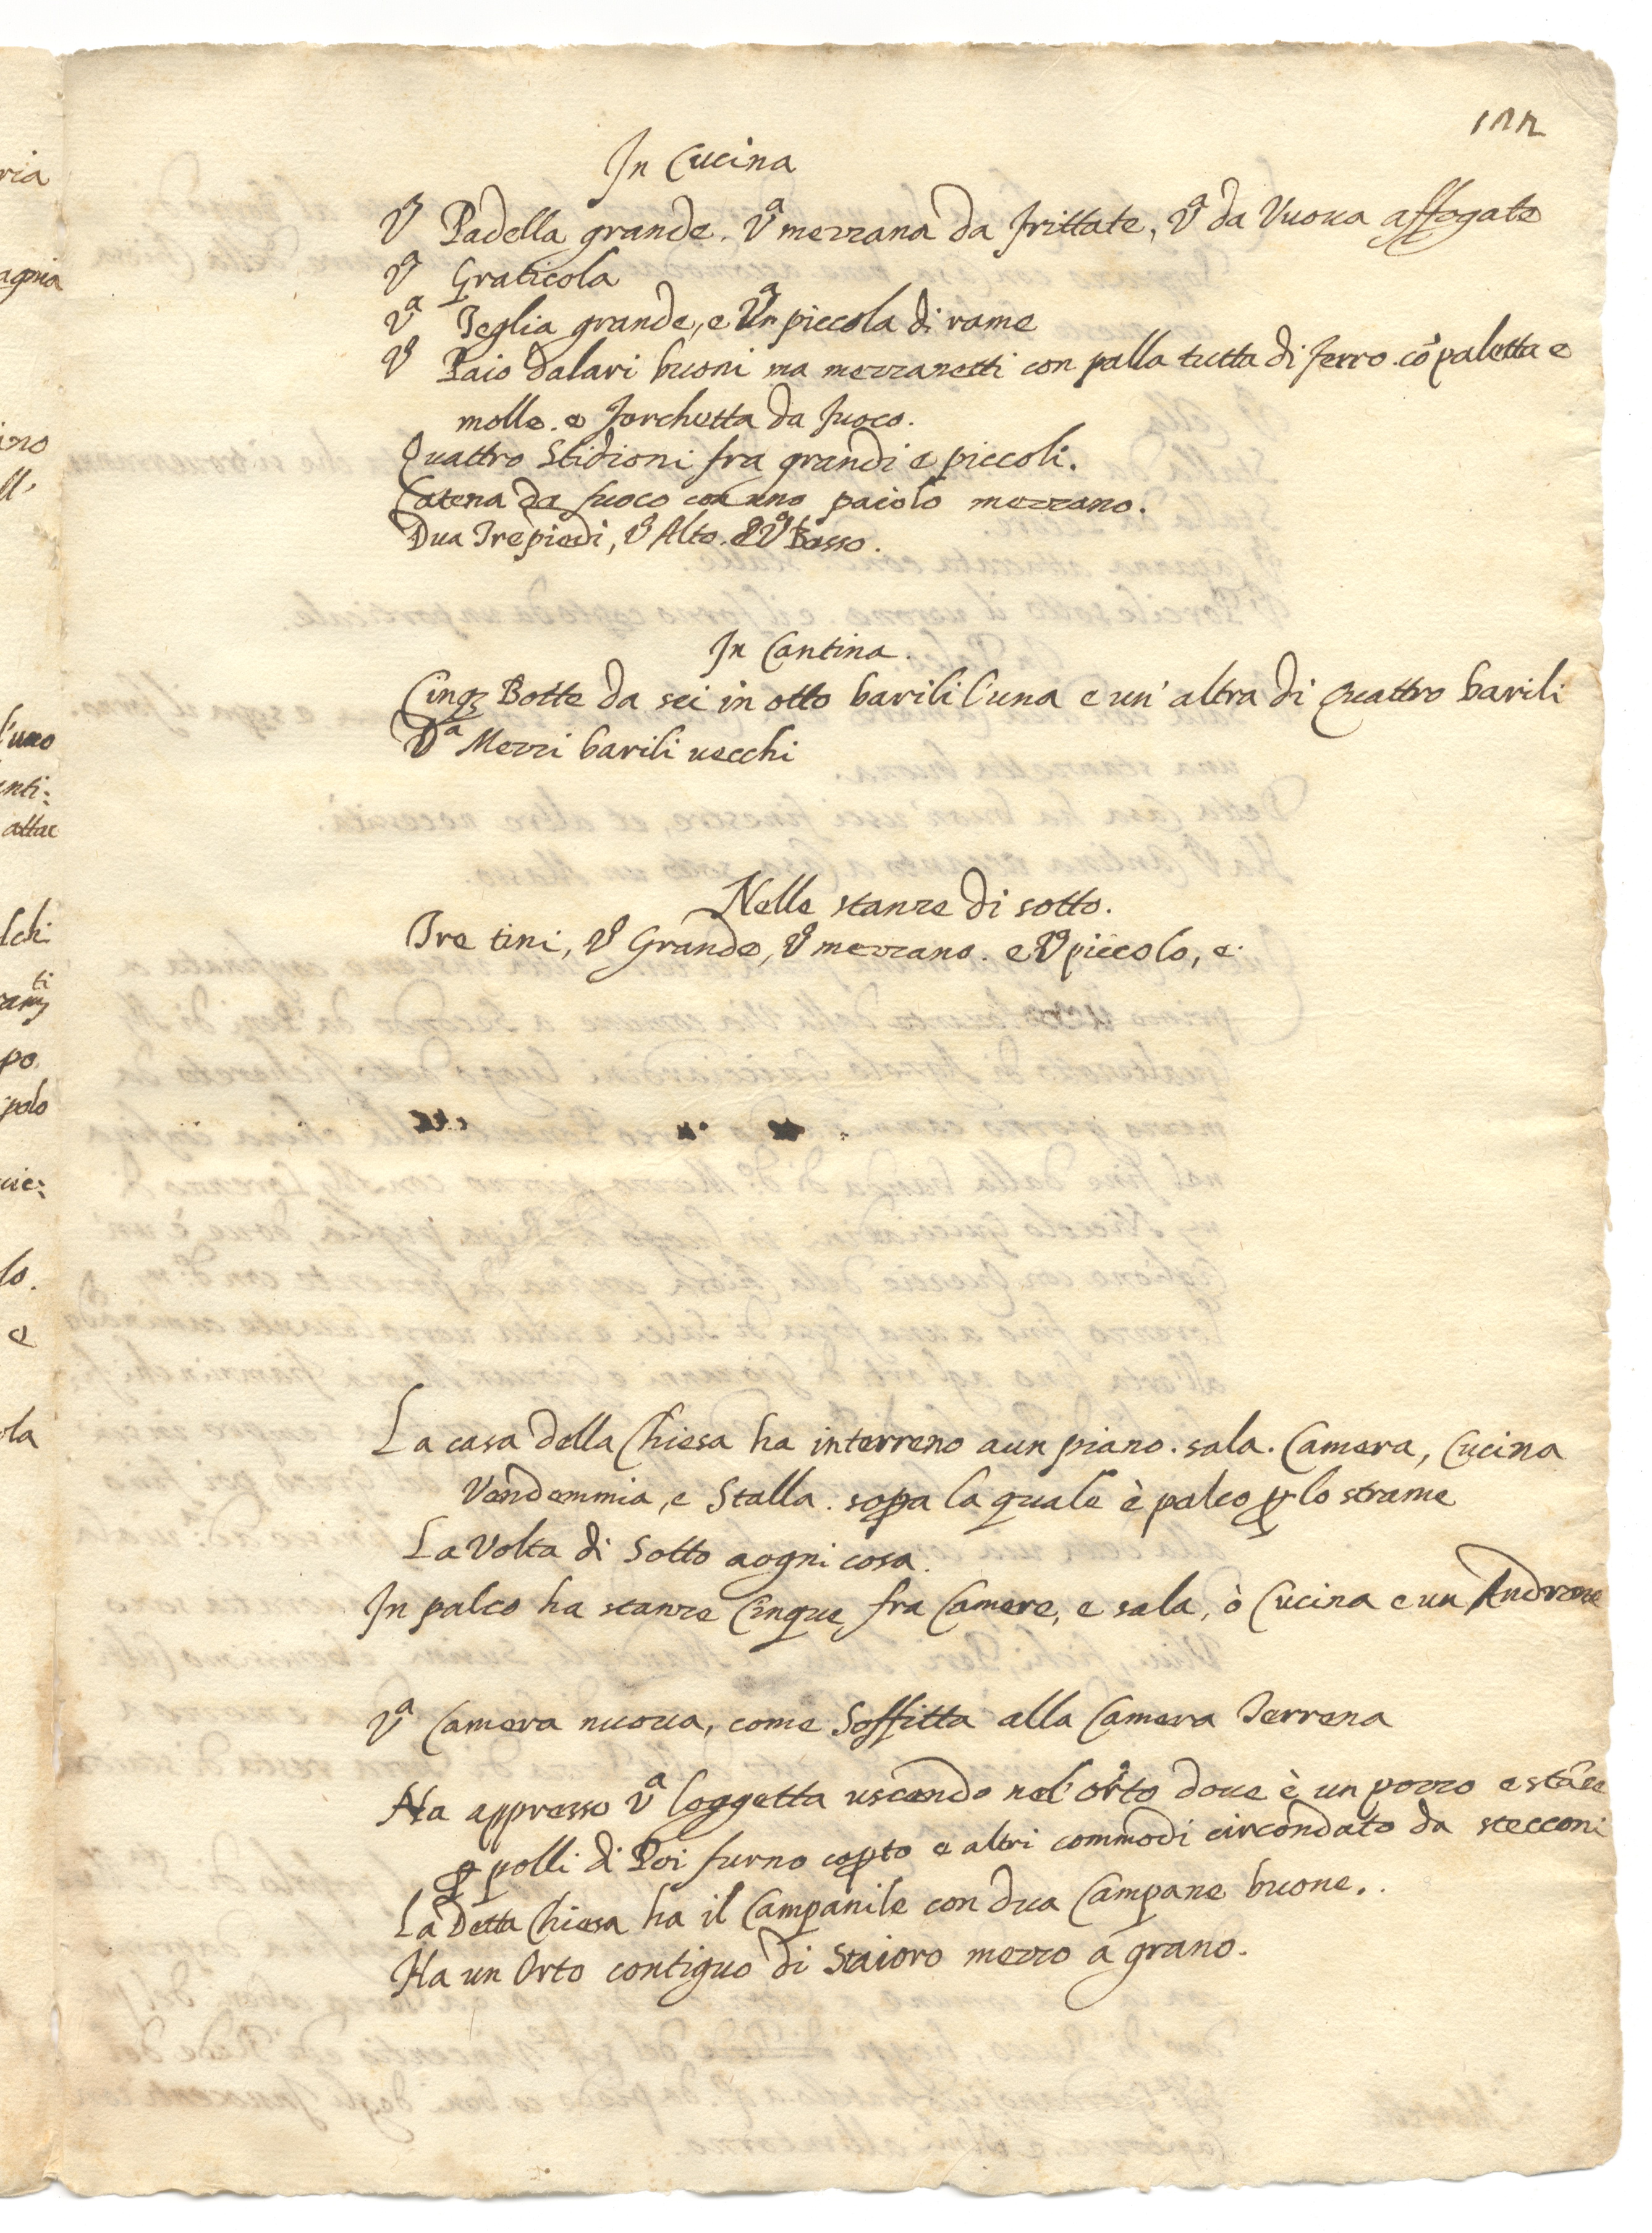 In Cucina
Vª Padella grande. Vª mezzana da frittate, Vª da Vuoua affogate
Vª Graticola
Vª Teglia grande, e Vª piccola di rame
Vº Paio dalari buoni ma mezzanotti con palla tutta di ferro. cō paletta e
molle. e forchetta da fuoco.
Quattro Stidioni fra grandi e piccoli.
Catena da fuoco con uno paiolo mezzano.
Dua Trepiedi, Vº Alto. e Vº Basso.
In Cantina.
Cinqꝫ Botte da sei in otto barili l'una e un' altra di Quattro barili
Dª Mezzi barili uecchi
Nelle stanze di sotto.
Tre tini, Vº Grande, Vº mezzano. e Vº piccolo, e.
La casa della Chiesa ha interreno a un piano. sala. Camera, Cucina
Vendemmia, e Stalla. soꝑa la quale è palco ꝑ lo strame
La Volta di Sotto a ogni cosa.
In palco ha stanze Cinque, fra Camere, e sala, ò Cucina e un Androne
Vª Camera nuoua, come Soffitta alla Camera Terrena
Ha appresso Vª loggetta uscendo nel' orto doue è un pozzo e stāze
ꝑ polli di Poi furno coꝑto e altri commodi circondato da stecconi
La Detta Chiesa ha il Campanile con dua Campane buone..
Ha un Orto contiguo di Staioro mezzo a grano.